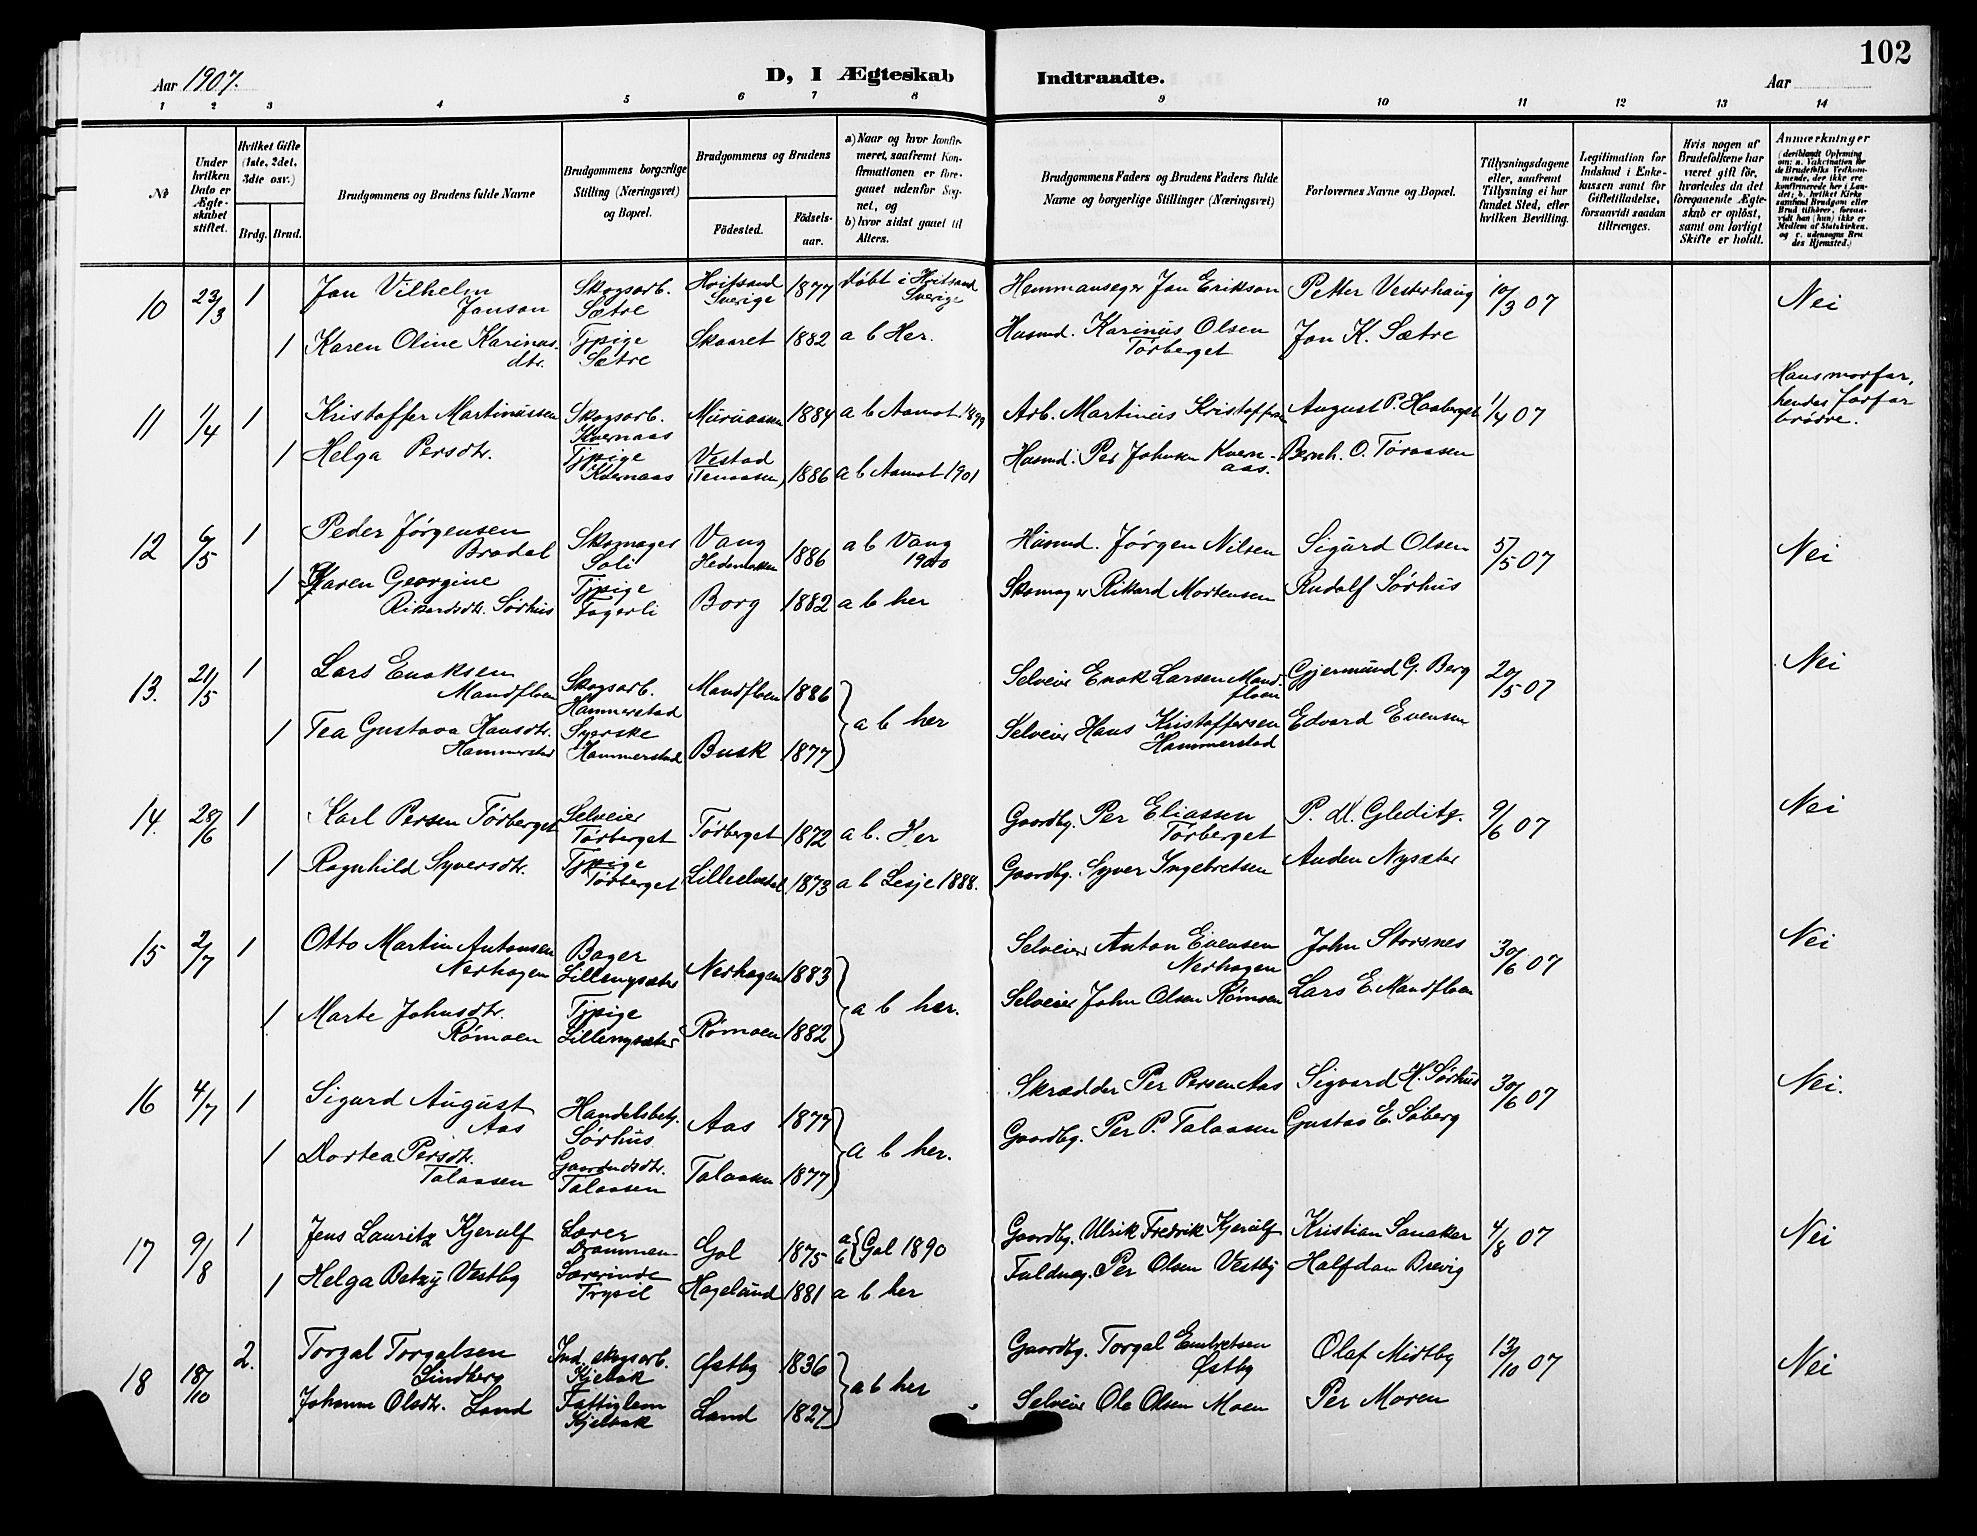 102
Aar 1907.
D, I Ægteskab Indtraadte.
Aar
1 2 3 4 5 6 7 8 9 10 11 12 13 14
№
Under hvilken Dato er Ægteskabet stiftet.
Hvilket Gifte (1ste, 2det, 3die osv.)
Brdg. Brud.
Brudgommens og Brudens fulde Navne
Brudgommens borgerlige Stilling (Næringsvei) og Bopæl.
Brudgommens og Brudens
Fødested.
Fødselsaar.
a) Naar og hvor konfirmeret, saafremt Konfirmationen er foregaaet udenfor Sognet, og
b) hvor sidst gaaet til Alters.
Brudgommens Faders og Brudens Faders fulde Navne og borgerlige Stillinger (Næringsvei)
Forlovernes Navne og Bopæl.
Tillysningsdagene eller, saafremt Tillysning ei har fundet Sted, efter hvilken Bevilling.
Legitimation for Indskud i Enkekassen samt for Giftetilladelse, forsaavidt saadan tiltrænges.
Hvis nogen af Brudefolkene har været gift før, hvorledes da det foregaaende Ægteskab er opløst, samt om lovligt Skifte er holdt.
Anmærkninger
(deriblandt Oplysning om: a. Vakcination for de Brudefolks Vedkommende, der ikke ere konfirmerede her i Landet; b. hvilket Kirkesamfund Brudgom eller Brud tilhører, forsaavidt han (hun) ikke er Medlem af Statskirken, og c. udensogns Brudes Hjemsted.)
10 23/3 1 Jon Vilhelm Jonson Skogsarb. Sætre Hvitsand Sverige 1877 døbt i Hvitsand Sverige Hemmanseger Jon Erikson Petter Vesterhaug 10/3 07 Nei
1 Karen Oline Karinusdtr. Tjpige Sætre Skaaret 1882 a b Her. Husmd. Karinus Olsen Tørberget Jon K. Sætre
11 1/4 1 Kristoffer Martinussen Skogsarb. Kvernaas Muruaasen 1884 a b Aamot 1899 Arb. Martinus Kristoffersen August P. Haaberget 1/4 07 Hans morfar, hendes farfar brødre.
1 Helga Persdtr. Tjpige Kvernaas Vestad (Tenaasen) 1886 a b Aamot 1901 Husmd. Per Johnsen Kvernaas. Bernh. O. Tøraasen
12 6/5 1 Peder Jørgensen Bradal Skomager Soli Vang Hedemarken 1886 a b Vang 1900 Husmd. Jørgen Nilsen Sigurd Olsen 5/5 07 Nei
1 Karen Georgine Rikardsdtr. Sørhus Tjpige Fagerli Borg 1882 a b her Skomager Rikard Mortensen Rudolf Sørhus
13. 21/5 1 Lars Enoksen Mandfloen Skogsarb. Hammerstad Mandfloen 1886 a b her Selveier Enok Larsen Mandfloen Gjermund G. Berg 20/5 07 Nei
1 Tea Gustava Hansdtr. Hammerstad Syerske Hammerstad Busk 1877 Selveier Hans Kristoffersen Hammerstad Edvard Evensen
14. 28/6 1 Karl Persen Tørberget Selveier Tørberget Tørberget 1872 a b. Her Gaardbg. Per Eliassen Tørberget P. M. Gleditz. 9/6 07 Nei
1 Ragnhild Syversdtr. Tjpige Tørberget Lilleelvedal 1873 a b Lesje 1888. Gaardbg. Syver Ingebretsen Auden Nysæter
15 2/7 1 Otto Martin Antonsen Nerhagen Bager Lillenysæter Nerhagen 1883 a b her. Selveier Anton Evensen Nerhagen John Storsnes 30/6 07 Nei
1 Marte Johnsdtr. Rømoen Tjpige Lillenysæter Rømoen 1882 Selveier John Olsen Rømoen Lars E. Mandfloen
16 4/7 1 Sigurd August Aas Handelsbetj. Sørhus Aas 1877 a b her. Skrædder Per Persen Aas Sigvard H. Sørhus 30/6 07 Nei.
1 Dortea Persdtr. Talaasen Gaardmdsdtr. Talaasen Talaasen 1877 Gaardbg. Per P. Talaasen Gustav E. Søberg
17 9/8 1 Jens Lauritz Kjerulf Lærer Drammen Gol 1875 a b Gol 1890 Gaardbg. Ulrik Fredrik Kjerulf Kristian Sanaker 4/8 07 Nei
1 Helga Betzy Vestby Lærerinde Trysil Hagelund 1881 a b her Fuldmg. Per Olsen Vestby Halfdan Brevig
18 18/10 2. Torgal Torgalsen Lindberg Ind. skogsarb. Kjelsak Østby 1836 a b her Gaardbg. Torgal Embretsen Østby Olaf Midtby 13/10 07 Nei
Johanne Olsdtr. Land Fattiglem Kjelsak Land 1827 Selveier Ole Olsen Moen Per Moren